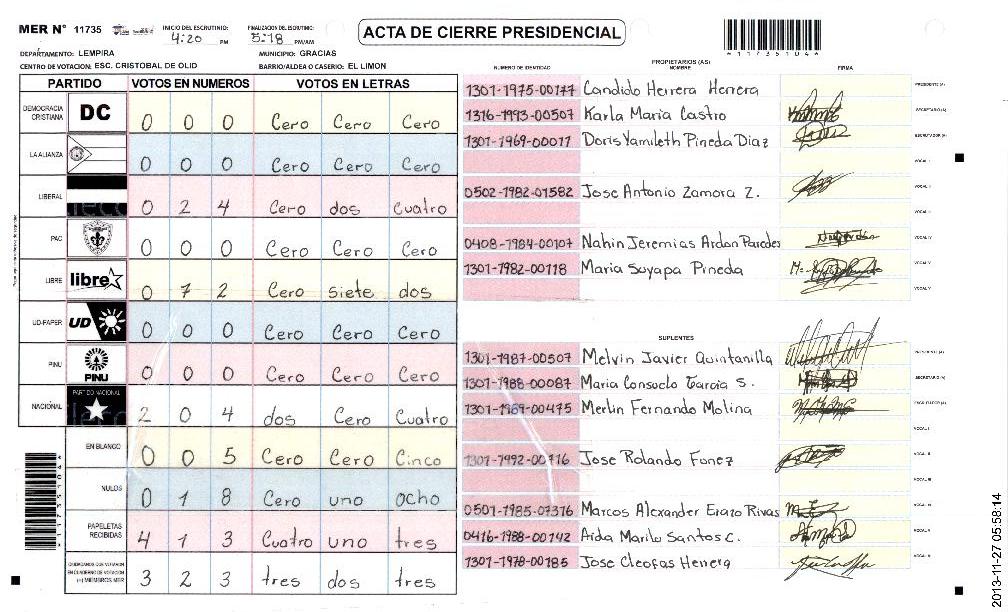 MER N° 11735
INICIO DEL ESCRUTINIO: 4:20 PM
FINALIZACION DEL ESCRUTINIO: 5:18 PM/AM
ACTA DE CIERRE PRESIDENCIAL
*11735104*
DEPARTAMENTO: LEMPIRA
MUNICIPIO: GRACIAS
CENTRO DE VOTACION: ESC. CRISTOBAL DE OLID
BARRIO/ALDEA O CASERIO: EL LIMON
PARTIDO VOTOS EN NUMEROS VOTOS EN LETRAS
DEMOCRACIA CRISTIANA DC 0 0 0 Cero Cero Cero
LA ALIANZA 0 0 0 Cero Cero Cero
LIBERAL 0 2 4 Cero dos cuatro
PAC 0 0 0 Cero Cero Cero
LIBRE libre 0 7 2 Cero siete dos
UD-FAPER UD 0 0 0 Cero Cero Cero
PINU PINU 0 0 0 Cero Cero Cero
NACIONAL PARTIDO NACIONAL 2 0 4 dos Cero Cuatro
EN BLANCO 0 0 5 Cero Cero Cinco
NULOS 0 1 8 Cero uno ocho
PAPELETAS RECIBIDAS 4 1 3 Cuatro uno tres
CIUDADANOS QUE VOTARON EN CUADERNO DE VOTACION (+) MIEMBROS MER 3 2 3 tres dos tres
*11735104*
PROPIETARIOS (AS)
NUMERO DE IDENTIDAD NOMBRE FIRMA
1301-1975-00177 Candido Herrera Herrera PRESIDENTE (A)
1316-1993-00507 Karla Maria Castro SECRETARIO (A)
1301-1969-00011 Doris Yamileth Pineda Diaz ESCRUTADOR (A)
VOCAL I
0502-1982-01582 Jose Antonio Zamora Z. VOCAL II
0408-1984-00107 Nahin Jeremias Ardon Paredes VOCAL IV
1301-1982-00118 Maria Suyapa Pineda VOCAL V
SUPLENTES
1301-1987-00507 Melvin Javier Quintanilla PRESIDENTE (A)
1301-1988-00087 Maria Consuelo Garcia S. SECRETARIO (A)
1301-1989-00475 Merlin Fernando Molina ESCRUTADOR (A)
VOCAL I
1301-1992-00716 Jose Rolando Funez VOCAL II
VOCAL III
0501-1985-07316 Marcos Alexander Erazo Rivas VOCAL IV
0416-1988-00142 Aida Marilo Santos C. VOCAL V
1301-1978-00185 Jose Cleofas Herrera
2013-11-27 05:58:14